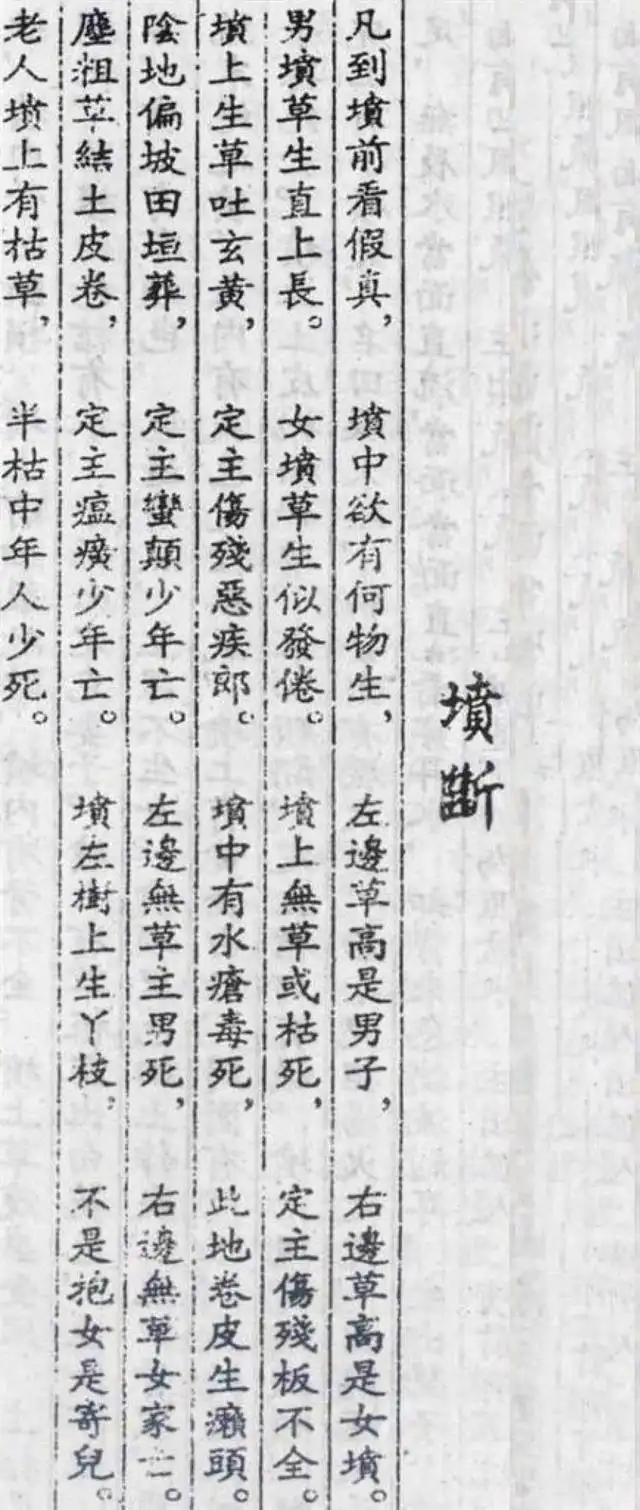 墳斷
凡到墳前看假真，墳中欲有何物生，左邊草高是男子，右邊草高是女墳。
男墳草生直上長。女墳草生似發倦。墳上無草或枯死，定主傷殘板不全。
墳上生草吐玄黃，定主傷殘惡疾郎。墳中有水瘡毒死，此地卷皮生癩頭。
陰地偏坡田垣葬，定主蠻顛少年亡。左邊無草主男死，右邊無草女家亡。
塵粗草結土皮卷，定主瘟癀少年亡。墳左樹上生丫枝。不是抱女是寄兒。
老人墳上有枯草，半枯中年人少死。